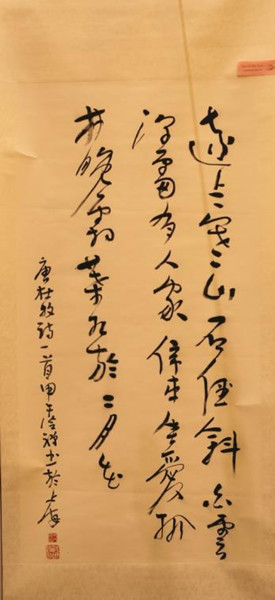 遠上寒山石徑斜白雲
深處有人家停車坐愛楓
林晚霜葉紅於二月花
唐杜牧詩一首甲午书於上海